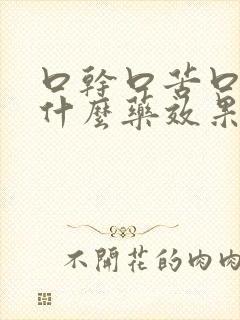 口幹口苦口
什麼藥效果
不開花的肉肉